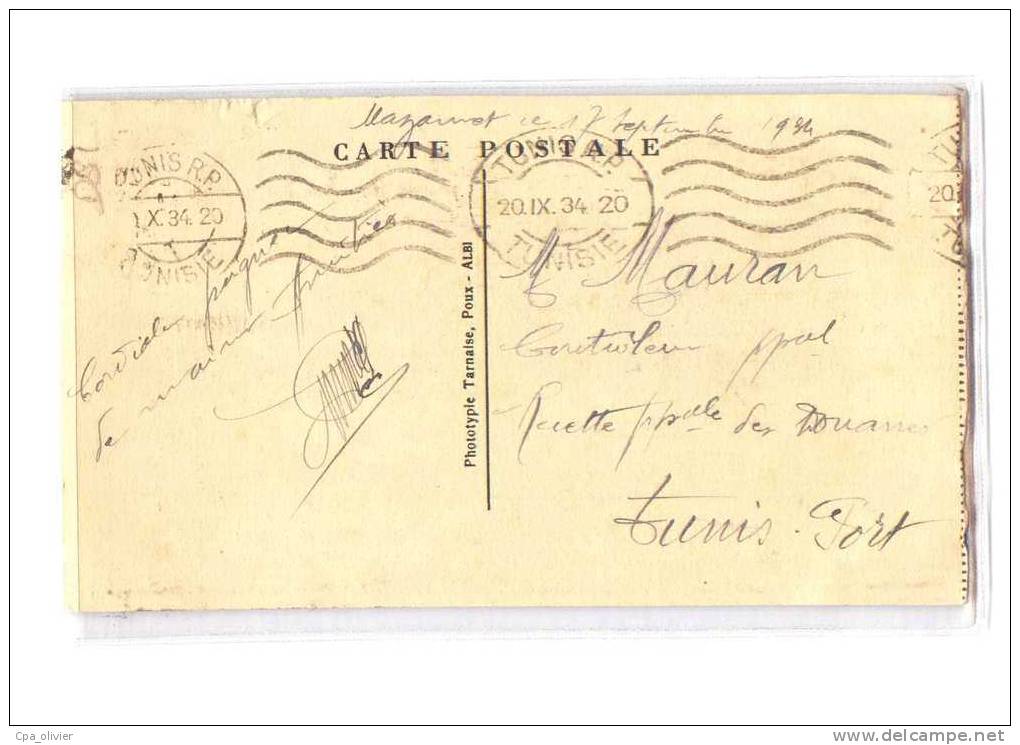 Mazamet le 17 Septembre 1934
CARTE POSTALE
TUNIS R.P.
IX. 34. 20
TUNISIE
TUNIS R.P.
20. IX. 34. 20
TUNISIE
20.
Cordiale poignée
de main
Phototypie Tarnaise, Poux - ALBI
M Mauran
Controleur ppal
Recette ppale des Douanes
Tunis-Port
Cpa_olivier
www.delcampe.net